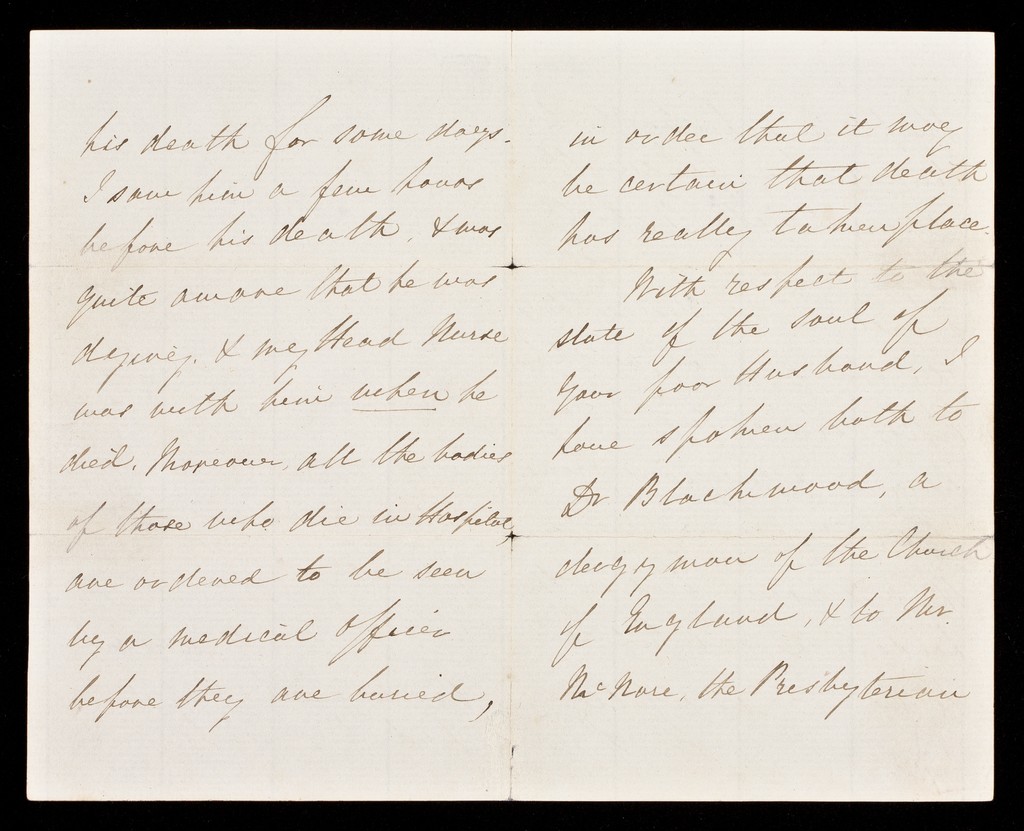 his death for some days.
I saw him a few hours
before his death, & was
quite aware that he was
dying. & my Head Nurse
was with him when he
died. Moreover, all the bodies
of those who die in Hospital,
are ordered to be seen
by a medical officer
before they are buried,
in order that it may
be certain that death
has really taken place.
With respect to the
state of the soul of
your poor Husband, I
have spoken both to
Dr Blackwood, a
clergyman of the Church
of England, & to Mr.
McNare, the Presbyterian